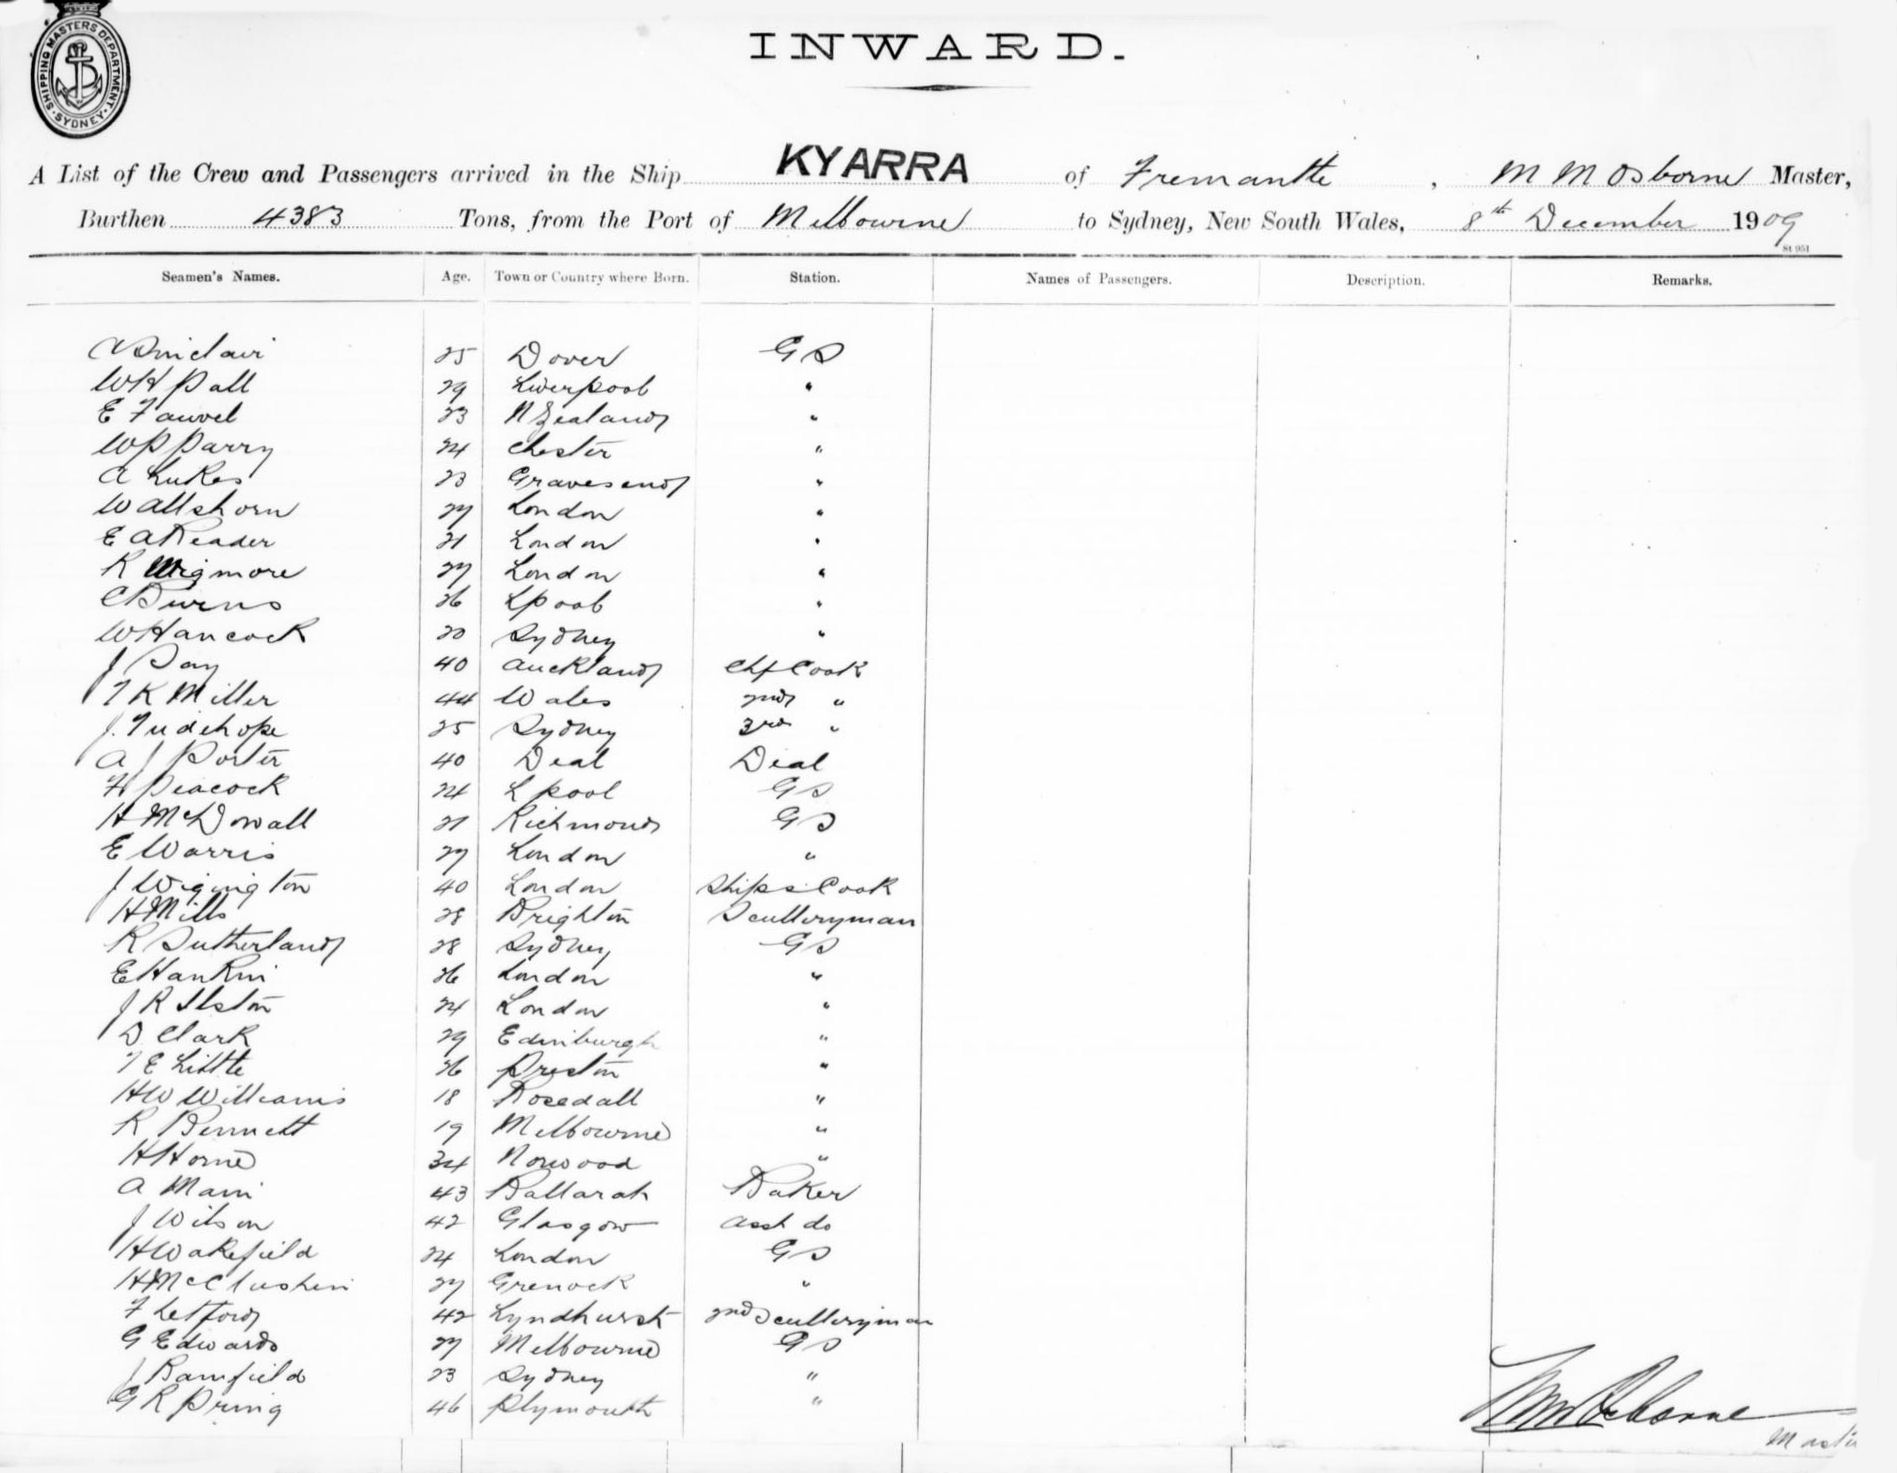 SHIPPING MASTERS DEPARTMENT. SYDNEY.
INWARD.
A List of the Crew and Passengers arrived in the Ship KYARRA of Fremantle, M M Osborne Master,
Burthen 4383 Tons, from the Port of Melbourne to Sydney, New South Wales, 8th December 1909
St 951
Seamen's Names. Age. Town or Country where Born. Station. Names of Passengers. Description. Remarks.
Sinclair 25 Dover G S
W H Pall 29 Liverpool "
E Fauvel 23 N Zealand "
W P Parry 24 Chester "
A Lukes 23 Gravesend "
W Allshorn 27 London "
E A Reader 21 London "
R Wigmore 27 London "
C Burns 26 Lpool "
W Hancock 20 Sydney "
J Day 40 Auckland Chf Cook
T K Miller 44 Wales 2nd "
J. Tudehope 25 Sydney 3rd "
A J Porter 40 Deal Deal
H Peacock 24 L pool G S
H McDowall 21 Richmond G S
E Warris 27 London "
J Wigington 40 London Ships Cook
H Mills 28 Brighton Sculleryman
R Sutherland 28 Sydney G S
E Hankin 26 London "
J R Ilston 24 London "
D Clark 29 Edinburgh "
T E Little 26 Preston "
H W Williams 18 Rosedall "
R Bennett 19 Melbourne "
H Horne 34 Norwood "
A Main 43 Ballarat Baker
J Wilson 42 Glasgow Asst do
H Wakefield 24 London G S
H McClushin 27 Grenock "
F Letford 42 Lyndhurst 2nd Sculleryman
G Edwards 27 Melbourne G S
J Bamfield 23 Sydney "
G R Pring 46 Plymouth "
M M Osborne
Master